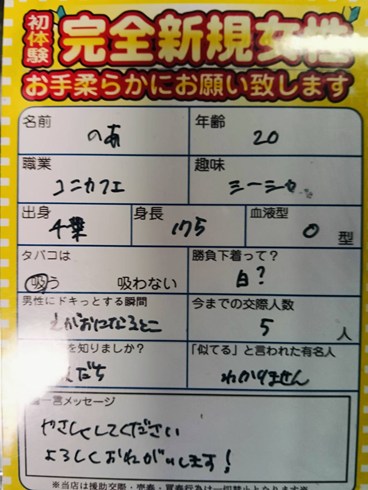 初体験 完全新規女性
お手柔らかにお願い致します
名前 のあ 年齢 20
職業 コニカフェ 趣味 シーシャ
出身 千葉 身長 175 血液型 O 型
タバコは 吸う 吸わない 勝負下着って? 白?
男性にドキっとする瞬間 今までの交際人数 5 人
を知りましたか? だち 「似てる」と言われた有名人 わかりません
一言メッセージ
やさしくしてください
よろしくおねがいします!
※当店は援助交際・売春・買春行為は一切禁止となります